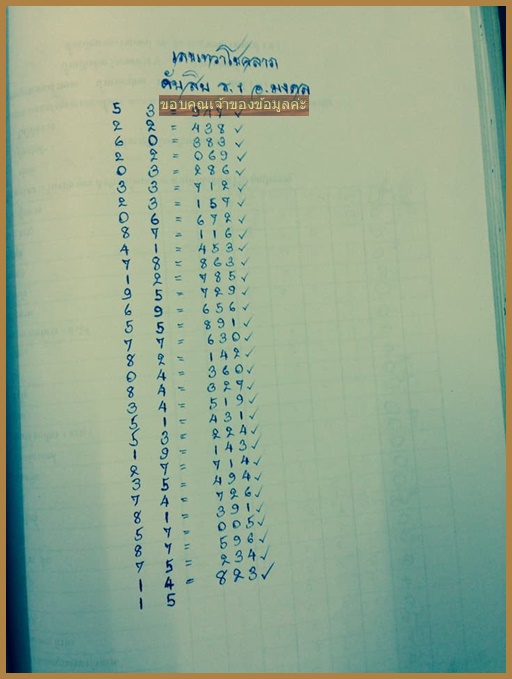 ดับสิบ อ.มงคล
ขอบคุณเจ้าของข้อมูลค่ะ
5 3 =
2 2 = 438 ✓
6 0 = 383 ✓
2 2 = 069 ✓
0 3 = 286 ✓
3 3 = 712 ✓
2 3 = 157 ✓
0 6 = 672 ✓
8 7 = 116 ✓
4 1 = 453 ✓
7 8 = 863 ✓
1 2 = 785 ✓
9 5 = 729 ✓
6 9 = 656 ✓
5 5 = 891 ✓
7 7 = 630 ✓
8 2 = 142 ✓
0 4 = 360 ✓
8 4 = 327 ✓
3 4 = 519 ✓
5 1 = 431 ✓
5 3 = 224 ✓
1 9 = 143 ✓
2 7 = 714 ✓
3 5 = 494 ✓
7 4 = 726 ✓
8 1 = 391 ✓
5 7 = 005 ✓
8 7 = 596 ✓
7 5 = 234 ✓
1 4 = 823 ✓
1 5